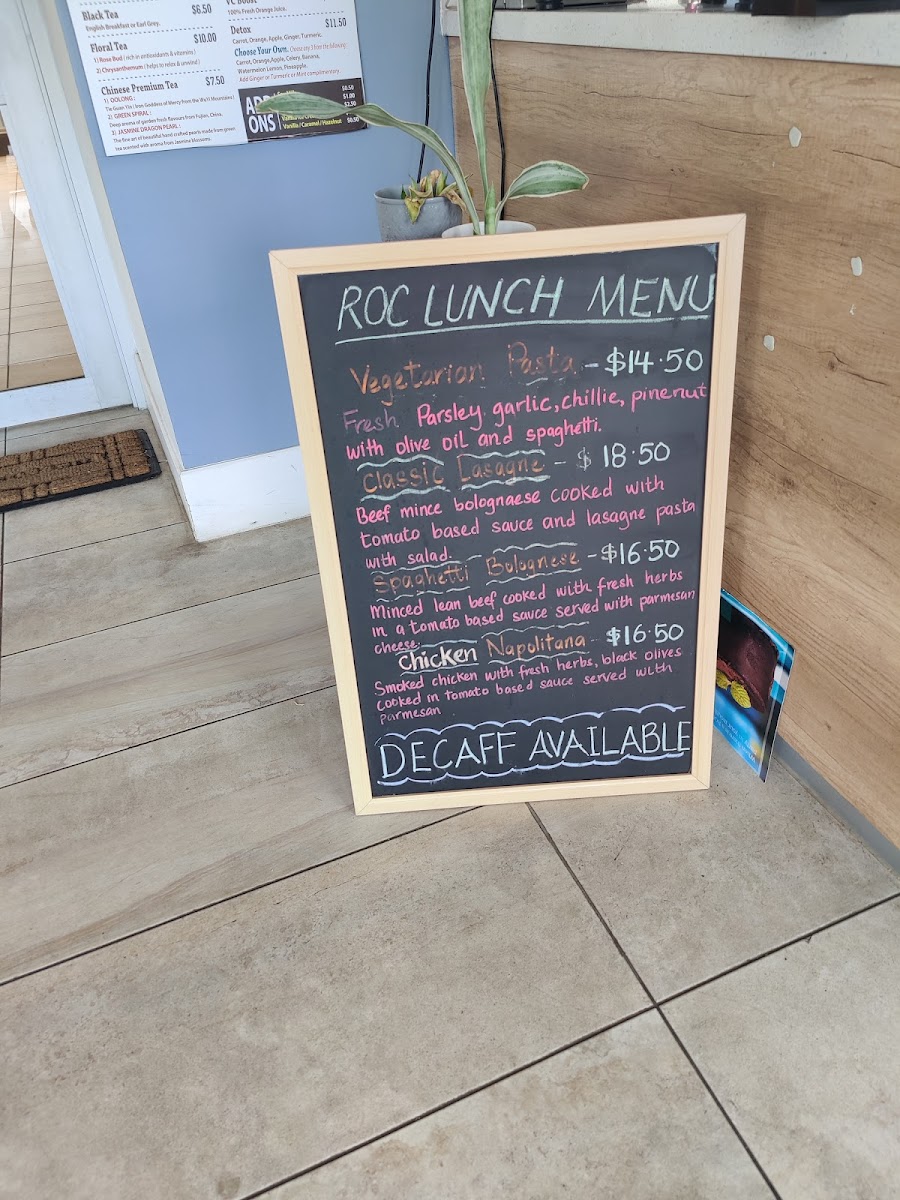 Black Tea $6.50
English Breakfast or Earl Grey.
Floral Tea $10.00
1) Rose Bud ( rich in antioxidants & vitamins )
2) Chrysanthemum ( helps to relax & unwind )
Chinese Premium Tea $7.50
1) OOLONG :
Tie Guan Yin ( Iron Goddess of Mercy from the Wu'li Mountains )
2) GREEN SPIRAL :
Deep aroma of garden fresh flavours from Fujian, China.
3) JASMINE DRAGON PEARL :
The fine art of beautiful hand crafted pearls made from green
tea scented with aroma from Jasmine blossoms.
VC Boost
100% Fresh Orange Juice.
Detox $11.50
Carrot, Orange, Apple, Ginger, Turmeric,
Choose Your Own. Choose any 3 from the following
Carrot, Orange, Apple, Celery, Banana,
Watermelon Lemon, Pineapple.
Add Ginger or Turmeric or Mint complimentary.
ADD
ONS
$0.50
$1.00
$2.50
Vanilla / Caramel / Hazelnut $0.90
ROC LUNCH MENU
Vegetarian Pasta - $14.50
Fresh Parsley garlic, chillie, pinenut
with olive oil and spaghetti.
Classic Lasagne - $ 18.50
Beef mince bolognaese cooked with
tomato based sauce and lasagne pasta
with salad.
Spaghetti Bolognese - $16.50
Minced lean beef cooked with fresh herbs
in a tomato based sauce served with parmesan
cheese.
Chicken Napolitana - $16.50
Smoked chicken with fresh herbs, black olives
cooked in tomato based sauce served with
parmesan
DECAFF AVAILABLE